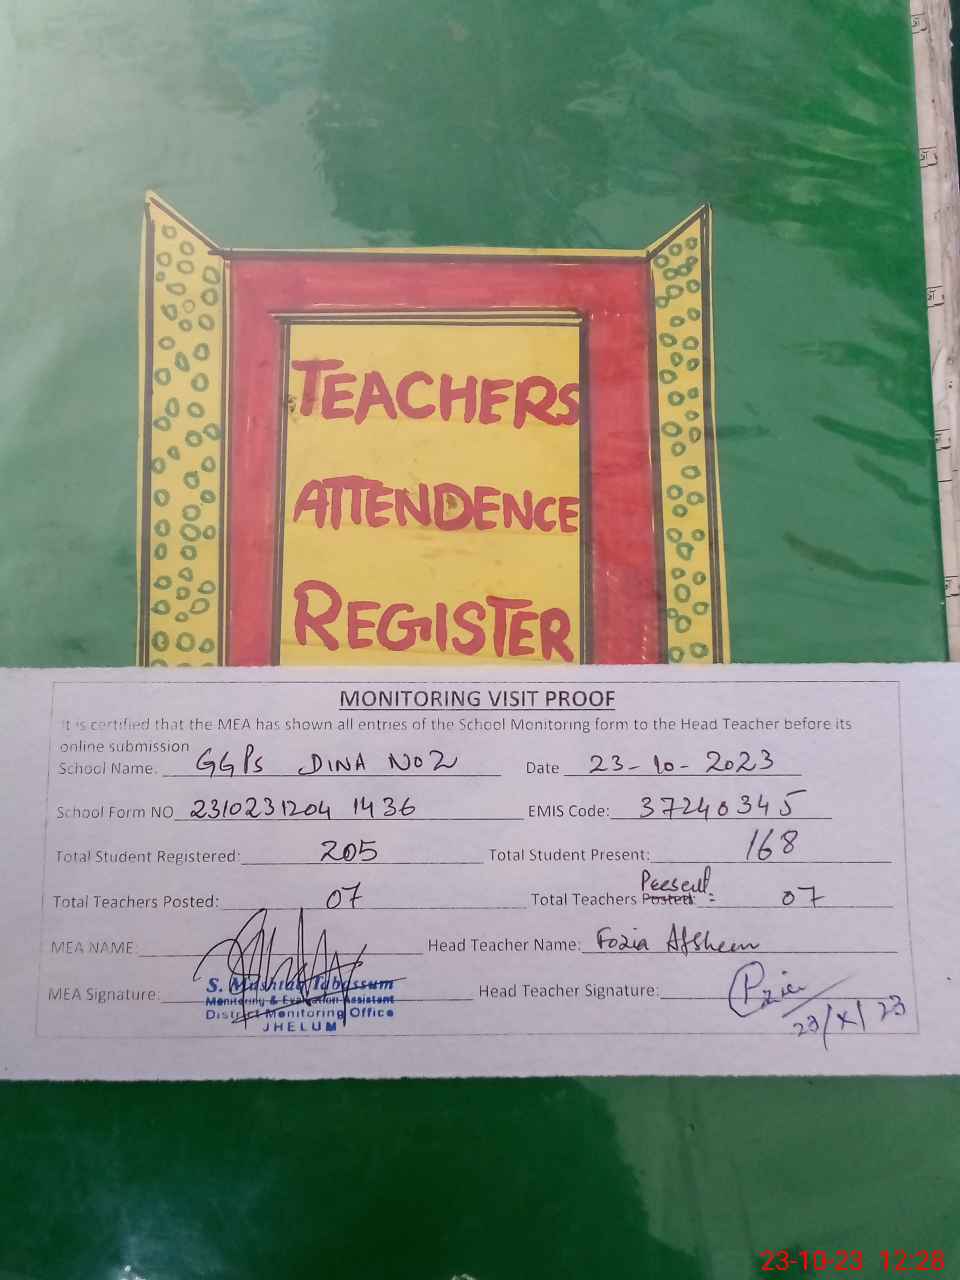 TEACHERS
ATTENDENCE
REGISTER
MONITORING VISIT PROOF
It is certified that the MEA has shown all entries of the School Monitoring form to the Head Teacher before its
online submission
School Name. GGPS DINA NO 2 Date 23-10-2023
School Form NO 2310231204 1436 EMIS Code: 37240345
Total Student Registered: 205 Total Student Present: 168
Total Teachers Posted: 07 Total Teachers Posted: Present = 07
MEA NAME: Head Teacher Name: Fozia Afsheen
MEA Signature: Head Teacher Signature:
S. Mushtaq Tabassum
Monitoring & Evaluation Assistant
District Monitoring Office
JHELUM
23/X/23
23-10-23 12:28